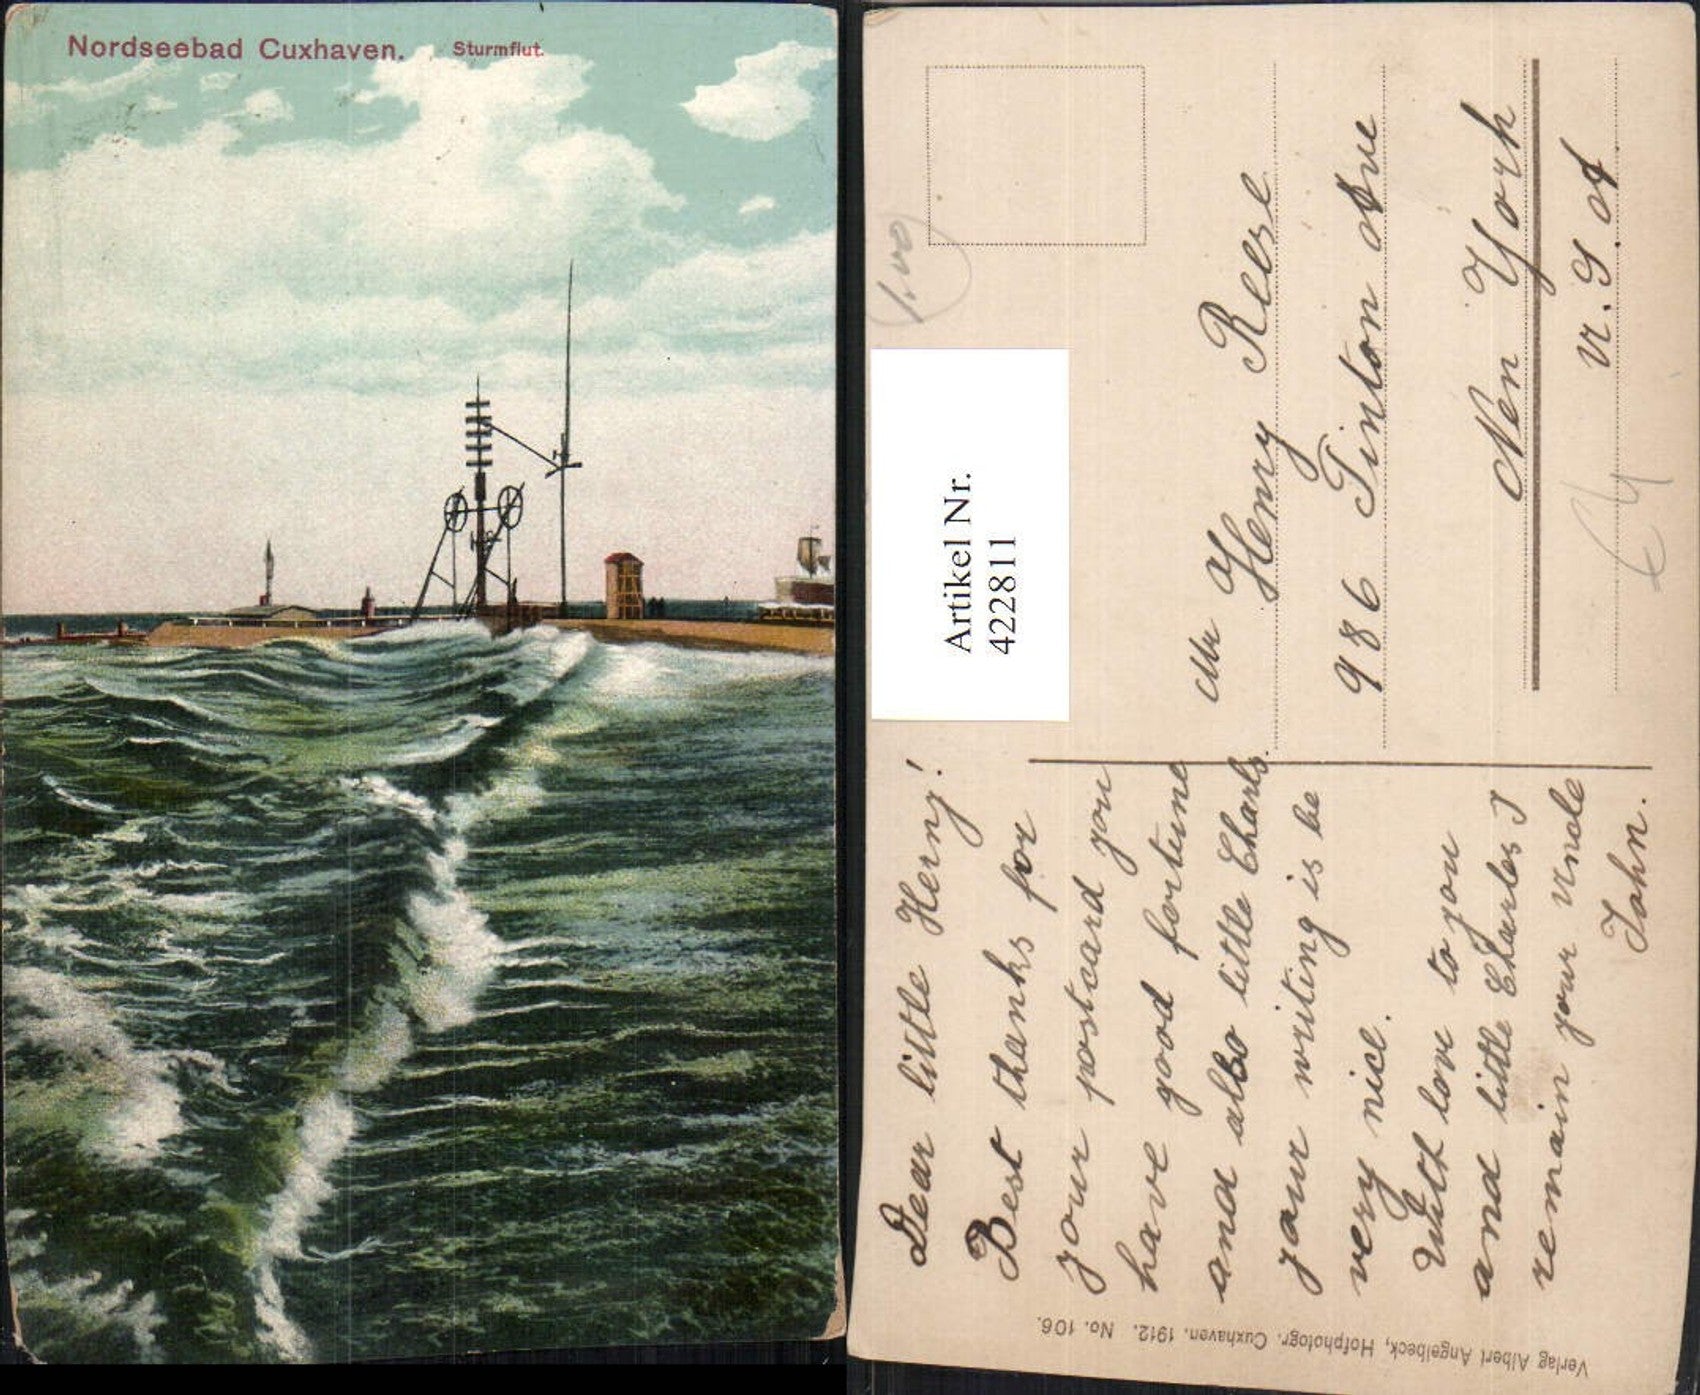 Nordseebad Cuxhaven. Sturmflut.
1.00
Artikel Nr.
422811
Dear little Henry!
Best thanks for
your postcard you
have good fortune
and also little Charls.
your writing is be
very nice.
With love to you
and little Charles I
remain your Uncle
John.
Mr Henry Reese
986 Tinton Ave
New York
U. S. A
Verlag Albert Angelbeck, Hofphotogr. Cuxhaven. 1912. No. 106.